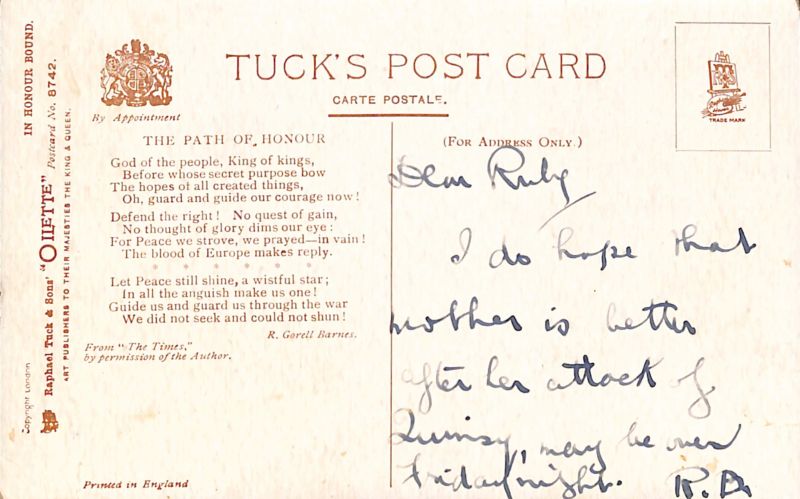 TUCK'S POST CARD
CARTE POSTALE.
By Appointment
THE PATH OF HONOUR
God of the people, King of kings,
Before whose secret purpose bow
The hopes of all created things,
Oh, guard and guide our courage now!
Defend the right! No quest of gain,
No thought of glory dims our eye:
For Peace we strove, we prayed—in vain!
The blood of Europe makes reply.
Let Peace still shine, a wistful star;
In all the anguish make us one!
Guide us and guard us through the war
We did not seek and could not shun!
R. Gorell Barnes.
From "The Times,"
by permission of the Author.
Printed in England
IN HONOUR BOUND.
Raphael Tuck & Sons' "OILETTE" Postcard No. 8742.
ART PUBLISHERS TO THEIR MAJESTIES THE KING & QUEEN.
Copyright London
TRADE MARK
(FOR ADDRESS ONLY.)
Dear Ruby
I do hope that
mother is better
after her attack of
Quinsy, may be over
Friday night. R.